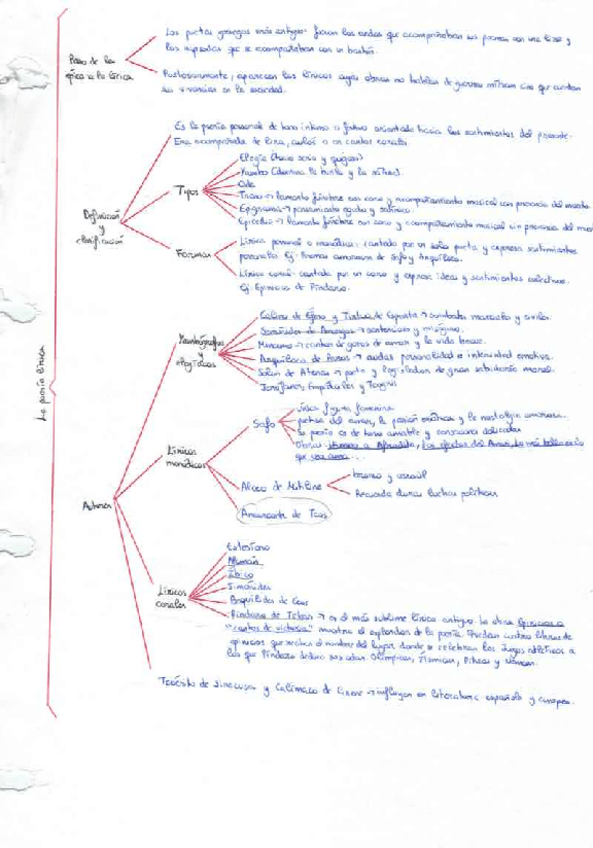 La poesía lírica
Paso de la
épica a la lírica
Los poetas griegos más antiguos fueron los aedos que acompañaban sus poemas con una lira y
los rapsodas que se acompañaban con un bastón.
Posteriormente, aparecen los líricos cuyas obras no hablan de guerras míticas sino que cantan
sus vivencias en la sociedad.
Definición
y
clasificación
Es la poesía personal de tono íntimo o festivo orientada hacia los sentimientos del presente.
Era acompañada de lira, o en cantos corales.
Tipos
Elegía (tono serio y quejoso)
Yambo (domina la burla y la sátira).
Oda
Treno → lamento fúnebre con coro y acompañamiento musical con presencia del muerto.
Epigrama → pensamiento agudo y satírico.
Epicedio → lamento fúnebre con coro y acompañamiento musical sin presencia del
Formas
Lírica personal o monódica: cantada por un solo poeta y expresa sentimientos
personales. Ej: Poemas amorosos de Safo y Arquíloco.
Lírica coral: cantada por un coro y expresa ideas y sentimientos colectivos.
Ej: Epinicios de Píndaro.
Autores
Yambógrafos
y
elegíacos
Calino de Éfeso y Tirteo de Esparta → combates marciales y civiles.
Semónides de Amorgos → sentencioso y misógino.
Mimnermo → cantor de goces de amor y la vida breve.
Arquíloco de Paros → audaz personalidad e intensidad emotiva.
Solón de Atenas → poeta y legislador de gran sabiduría moral.
Jenófanes, Empédocles y Teognis
Líricos
monódicos
Safo
única figura femenina
poetisa del amor, la pasión erótica y la nostalgia amorosa.
Su poesía es de tono amable y delicadas
Obras: Himno a Afrodita, Los efectos del Amor, Lo más bello es lo
que uno ama...
Alceo de Mitilene
Recuerda duras luchas políticas
Anacreonte de Teos
Líricos
corales
Estesícoro
Alcmán
Íbico
Simónides
Baquílides de Ceos
Píndaro de Tebas → es el más sublime lírico antiguo. Su obra Epinicios o
"cantos de victoria" muestra el esplendor de la poesía. Quedan cuatro libros de
epinicios que reciben el nombre del lugar donde se celebran los Juegos atléticos a
los que Píndaro dedicó sus odas: Olímpicas, Ístmicas, Píticas y Nemeas.
Teócrito de Siracusa y Calímaco de Cirene → influyen en literatura española y europea.